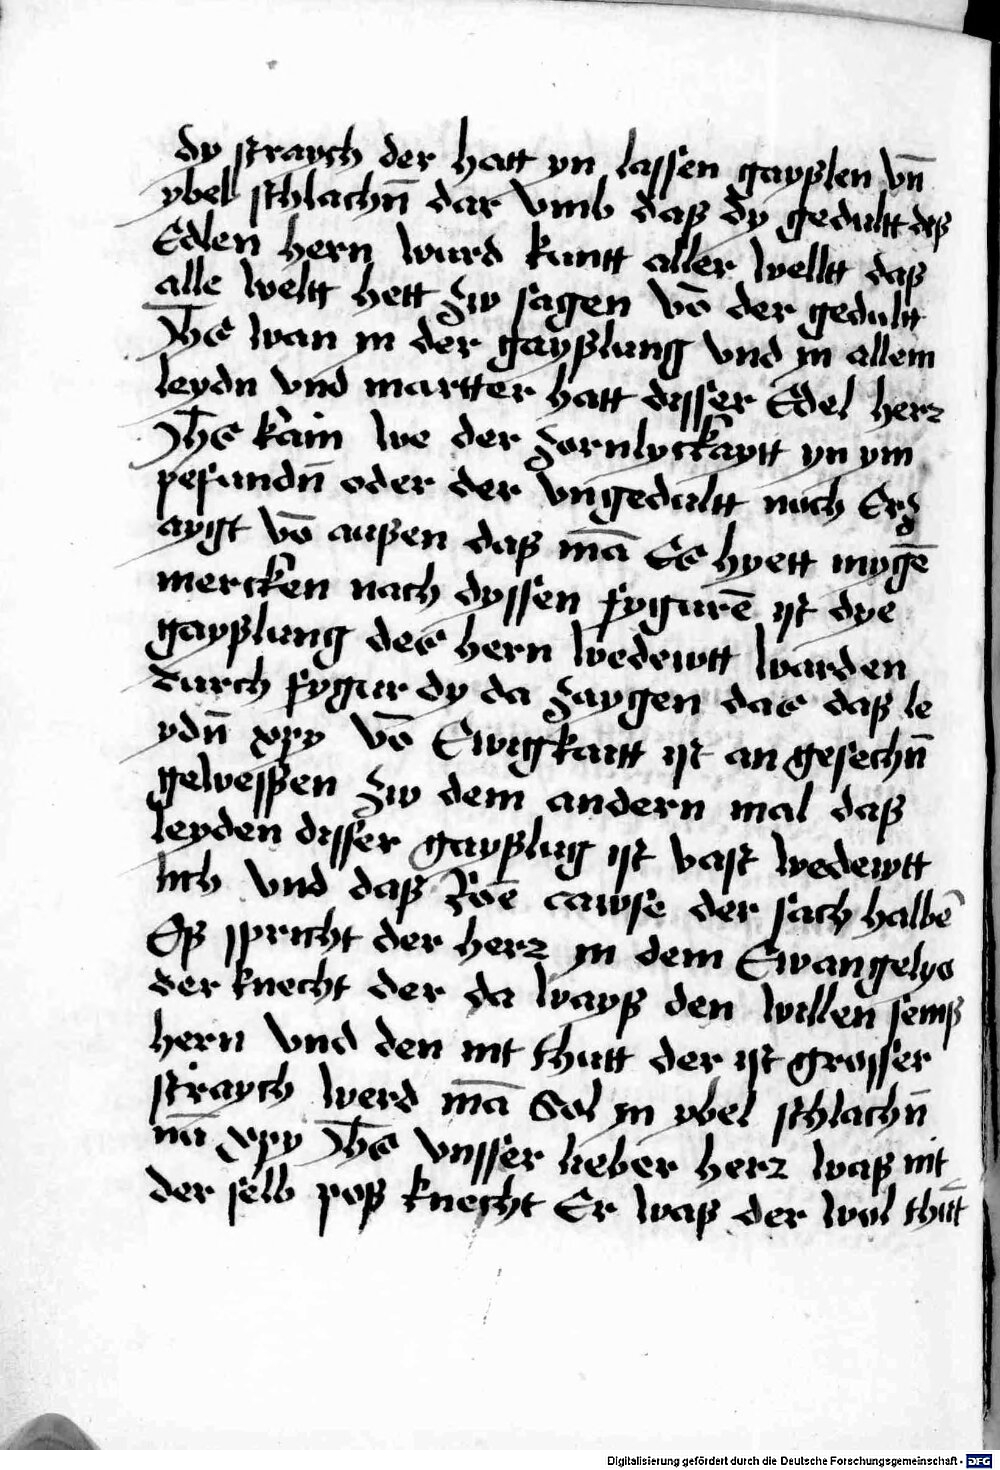 dy straych der hatt yn lassen gayßlen vn̄
ybel schlachn̄ dar vmb daß dy gedultt deß
Edlen hern wurd kuntt aller welltt daß
alle weltt hett zw sagen vō der gedultt
Jhs wan in der gayßlung vnd in allem
leydn vnd martter hatt disser Edel herz
Jhs kain we der zornlyckaytt yn ym
pefundn̄ oder der vngedultt noch Erz
aygt vō außen daß mā Es hyett mygē
mercken nach dyssen fygurē ist dye
gayßlung des hern wedewtt warden
durch fygur dy da zaygen das daß le
ydn̄ xpy vō Ewigkaitt ist an gesechn̄
gewessen zw dem andern mal daß
leyden disser gayßlug ist vast wedewtt
lich vnd daß Rōe cawse der sach halbē
Eß spricht der herz in dem Ewangelyo
der knecht der da wayß den willen seinß
hern vnd den nit thutt der ist grosser
straych werd mā Sol in ybel schlachn̄
nā xpy Jhs vnsser lieber herz waß nit
der selb poß knecht Er waß der wol thutt
Digitalisierung gefördert durch die Deutsche Forschungsgemeinschaft - DFG